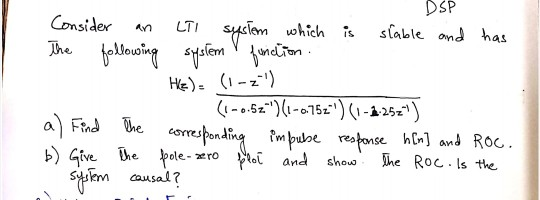 DSP
Consider an LTI system which is stable and has
the following system function.
H(z) = (1 - z⁻¹)
(1 - 0.5z⁻¹)(1 - 0.75z⁻¹)(1 - 1.25z⁻¹)
a) Find the corresponding impulse response h[n] and ROC.
b) Give the pole-zero plot and show the ROC. Is the
system causal?